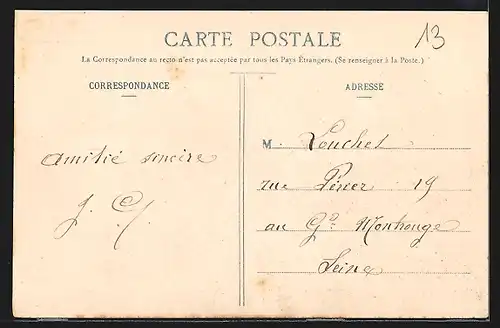 CARTE POSTALE
13
La Correspondance au recto n'est pas acceptée par tous les Pays Étrangers. (Se renseigner à la Poste.)
CORRESPONDANCE
amitié sincère
J. C.
ADRESSE
M. Louchet
rue Périer 19
au Gd Montrouge
Seine